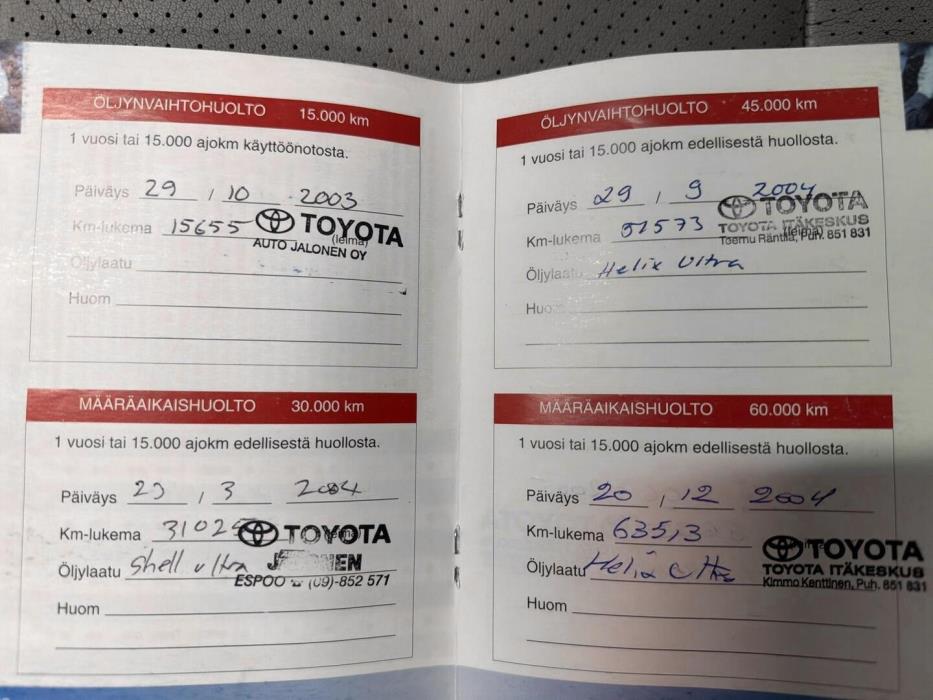 ÖLJYNVAIHTOHUOLTO 15.000 km
1 vuosi tai 15.000 ajokm käyttöönotosta.
Päiväys 29 / 10 2003
Km-lukema 15655 TOYOTA
(leima)
AUTO JALONEN OY
Öljylaatu
Huom
MÄÄRÄAIKAISHUOLTO 30.000 km
1 vuosi tai 15.000 ajokm edellisestä huollosta.
Päiväys 23 / 3 2004
Km-lukema TOYOTA
Öljylaatu Shell ultra
ESPOO ☎ (09)-852 571
Huom
ÖLJYNVAIHTOHUOLTO 45.000 km
1 vuosi tai 15.000 ajokm edellisestä huollosta.
Päiväys 29 / 9 2004
TOYOTA
Km-lukema 51573 TOYOTA ITÄKESKUS
(leima)
Teemu Räntilä, Puh. 851 831
Öljylaatu Helix Ultra
Huom
MÄÄRÄAIKAISHUOLTO 60.000 km
1 vuosi tai 15.000 ajokm edellisestä huollosta.
Päiväys 20 / 12 2004
Km-lukema 63513 TOYOTA
TOYOTA ITÄKESKUS
Öljylaatu Helix
Kimmo Kenttinen, Puh. 851 831
Huom